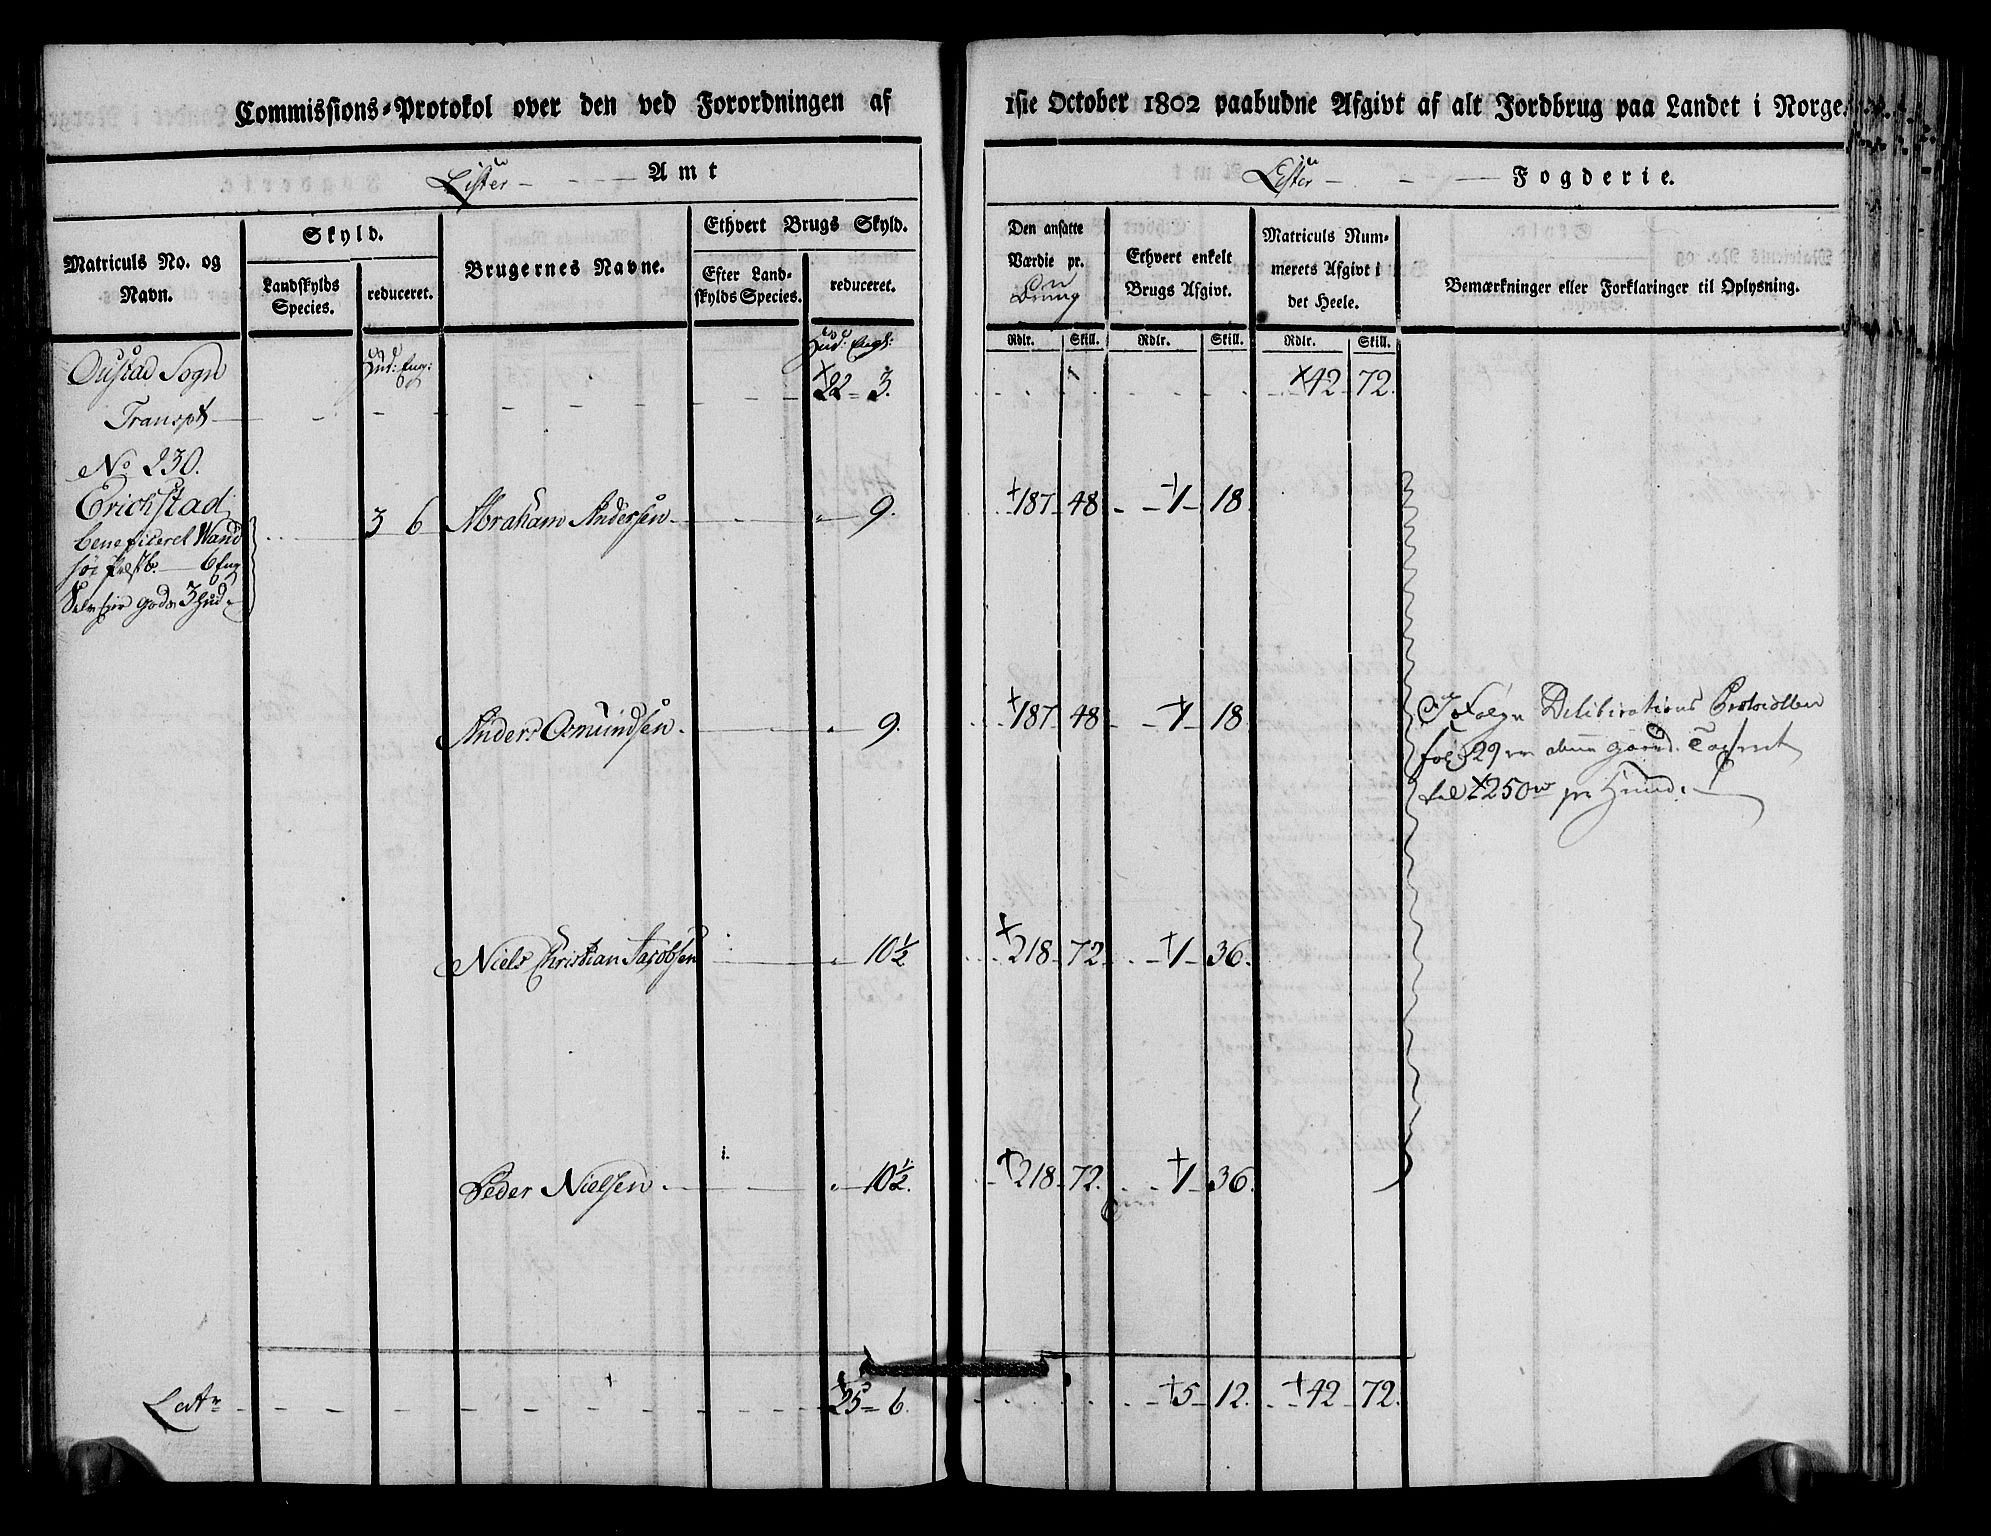 Commissions-Protokol over den ved Forordningen af
1ste October 1802 paabudne Afgivt af alt Jordbrug paa Landet i Norge.
Lister Amt
Lister Fogderie.
Matriculs No. og Navn.
Skyld.
Landskylds Species.
reduceret.
Brugernes Navne.
Ethvert Brugs Skyld.
Efter Landskylds Species.
reduceret.
Den ansatte Værdie pr.
Ethvert enkelt Brugs Afgivt.
Matriculs Nummerets Afgivt i det Heele.
Bemærkninger eller Forklaringer til Oplysning.
Rdlr. Skill. Rdlr. Skill. Rdlr. Skill.
Hud: Eng:
Hud: Engl:
Oustad Sogn
Transpt 22 3. 42 72.
No 230.
Erichstad 3 6 Abraham Andersen 9. 187 48 1 18.
beneficeret Wand
søe Præstb. 6 Eng
Selveier gods 3 Hud.
Anders Osmundsen. 9. 187 48 1 18.
Følge Deliberations Protocollen
fol: 29
til 250 rd pr Huud.
Niels Christian Jacobsen 10½ 218 72 1 36.
Peder Nielsen 10½. 218 72. 1 36.
Latr 25 6. 5 12. 42 72.